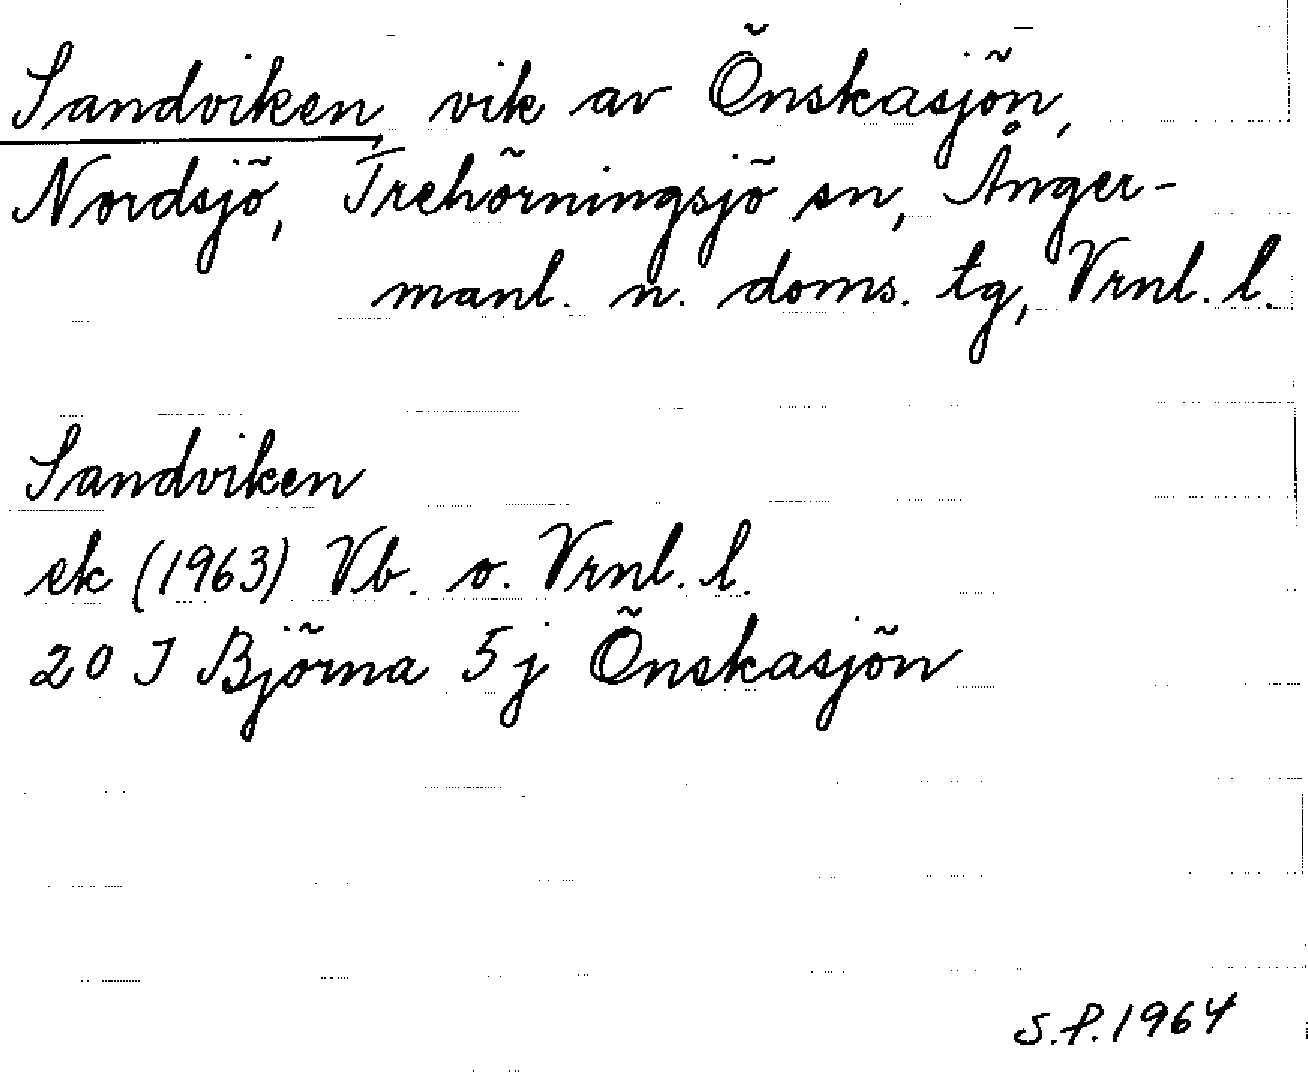 Sandviken, vik av Önskasjön,
Nordsjö, Trehörningsjö sn, Ånger-
manl. n. doms. tg, Vrnl. l.
Sandviken
ek (1963) Vb. o. Vrnl. l.
20 J Björna 5 j Önskasjön
S.P. 1964